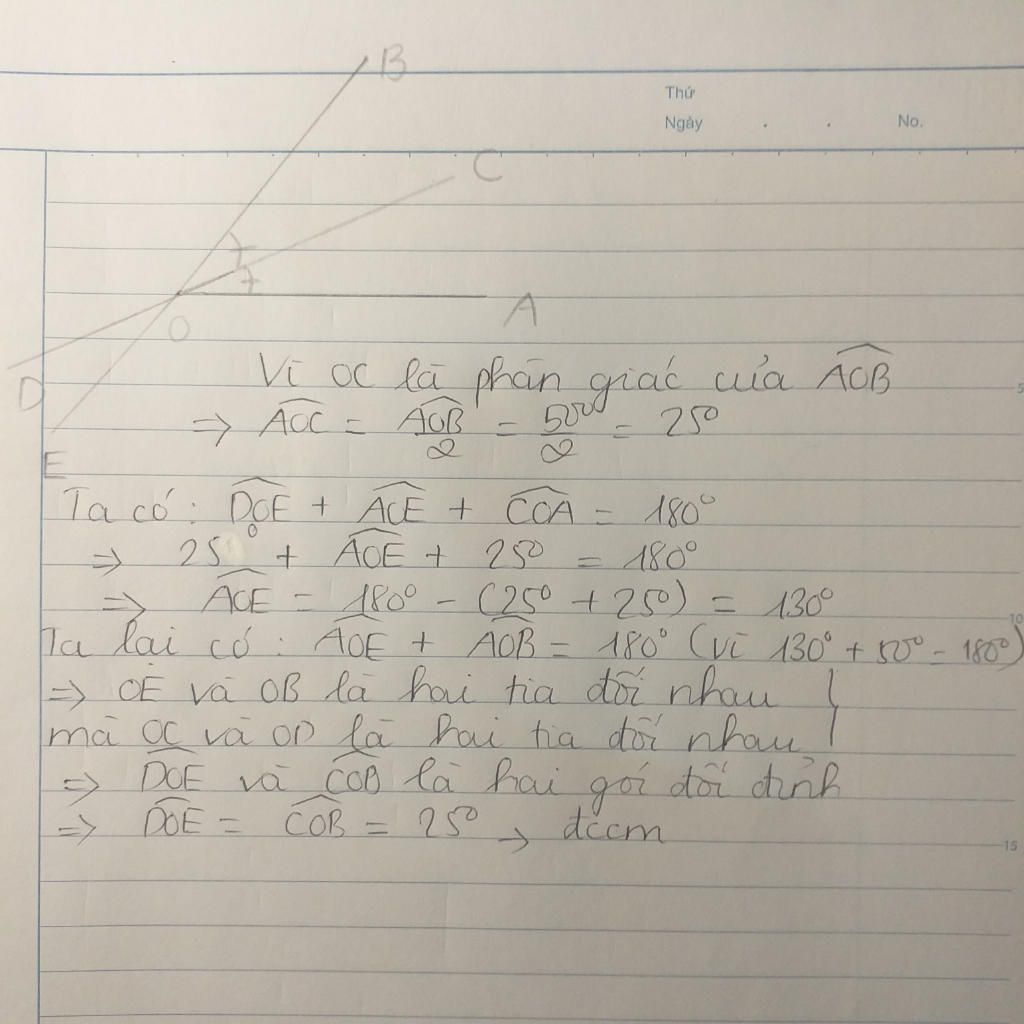 B
Thứ
Ngày . . No.
C
O
A
D
E
Vì OC là phân giác của AOB
5
=> AOC = AOB/2 = 50°/2 = 25°
Ta có: DOE + AOE + COA = 180°
=> 25° + AOE + 25° = 180°
=> AOE = 180° - (25° + 25°) = 130°
10
Ta lại có: AOE + AOB = 180° (vì 130° + 50° = 180°)
=> OE và OB là hai tia đối nhau }
mà OC và OD là hai tia đối nhau
=> DOE và COB là hai gói đối đỉnh
=> DOE = COB = 25° → đccm
15